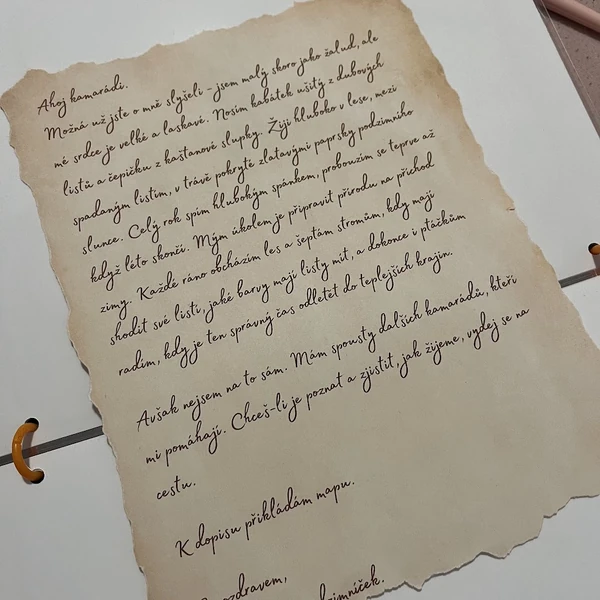 Ahoj kamarádi.
Možná už jste o mně slyšeli – jsem malý skoro jako žalud, ale
mé srdce je velké a laskavé. Nosím kabátek ušitý z dubových
listů a čepičku z kaštanové slupky. Žiji hluboko v lese, mezi
spadaným listím, v trávě pokryté zlatavými paprsky podzimního
slunce. Celý rok spím hlubokým spánkem, probouzím se teprve až
když léto skončí. Mým úkolem je připravit přírodu na příchod
zimy. Každé ráno obcházím les a šeptám stromům, kdy mají
shodit své listí, jaké barvy mají listy mít, a dokonce i ptáčkům
radím, kdy je ten správný čas odletět do teplejších krajin.
Avšak nejsem na to sám. Mám spousty dalších kamarádů, kteří
mi pomáhají. Chceš-li je poznat a zjistit, jak žijeme, vydej se na
cestu.
K dopisu přikládám mapu.